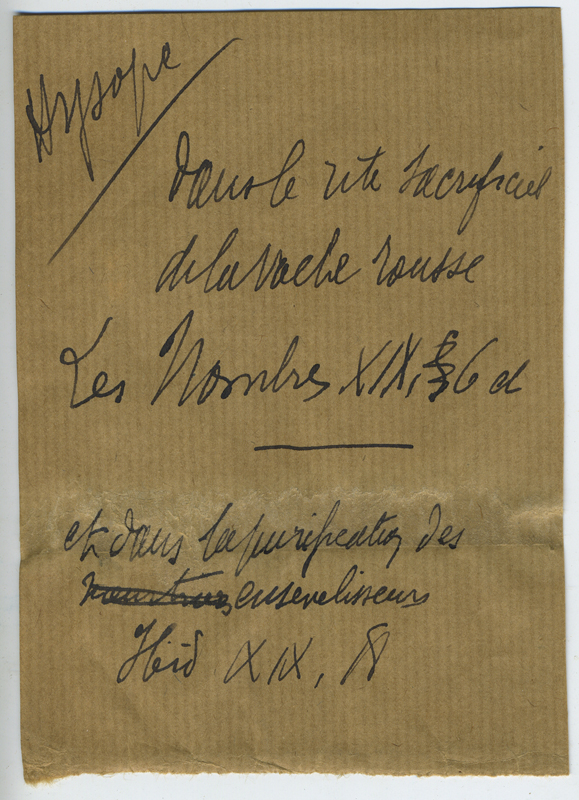 Hysope
dans le rite sacrificiel
de la vache rousse
Les Nombres XIX, 6 et
et dans la purification des
ensevelisseurs
Ibid XIX, 18